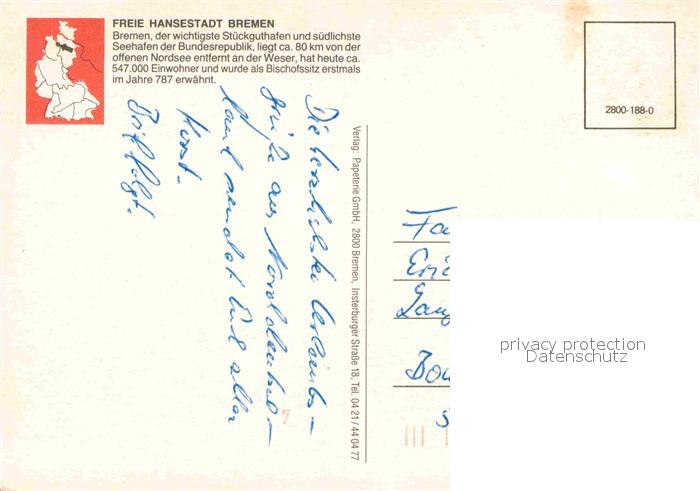 FREIE HANSESTADT BREMEN
Bremen, der wichtigste Stückguthafen und südlichste
Seehafen der Bundesrepublik, liegt ca. 80 km von der
offenen Nordsee entfernt an der Weser, hat heute ca.
547.000 Einwohner und wurde als Bischofssitz erstmals
im Jahre 787 erwähnt.
2800-188-0
Die herzlichsten Urlaubs-
grüße aus Norddeutsch-
land sendet Euch allen
Horst.
Brief folgt.
Verlag: Papeterie GmbH, 2800 Bremen, Insterburger Straße 18, Tel. 04 21 / 44 04 77
Fa
Eri
Lang
Bou
5
privacy protection
Datenschutz